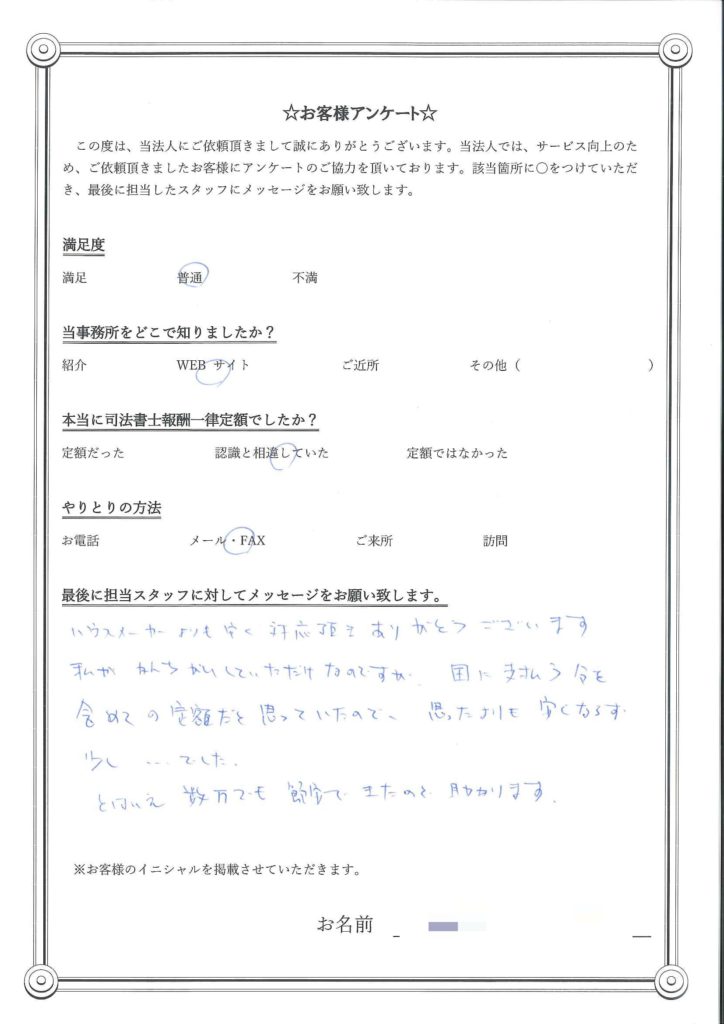 ☆お客様アンケート☆
この度は、当法人にご依頼頂きまして誠にありがとうございます。当法人では、サービス向上のた
め、ご依頼頂きましたお客様にアンケートのご協力を頂いております。該当箇所に〇をつけていただ
き、最後に担当したスタッフにメッセージをお願い致します。
満足度
満足 普通 不満
当事務所をどこで知りましたか？
紹介 WEB サイト ご近所 その他（ ）
本当に司法書士報酬一律定額でしたか？
定額だった 認識と相違していた 定額ではなかった
やりとりの方法
お電話 メール・FAX ご来所 訪問
最後に担当スタッフに対してメッセージをお願い致します。
ハウスメーカーよりも安く対応頂きありがとうございます
私がかんちがいしていただけなのですが、国に支払う分を
含めての定額だと思っていたので、思ったよりも安くならず
少し…でした。
とはいえ数万でも節約できたので助かります。
※お客様のイニシャルを掲載させていただきます。
お名前